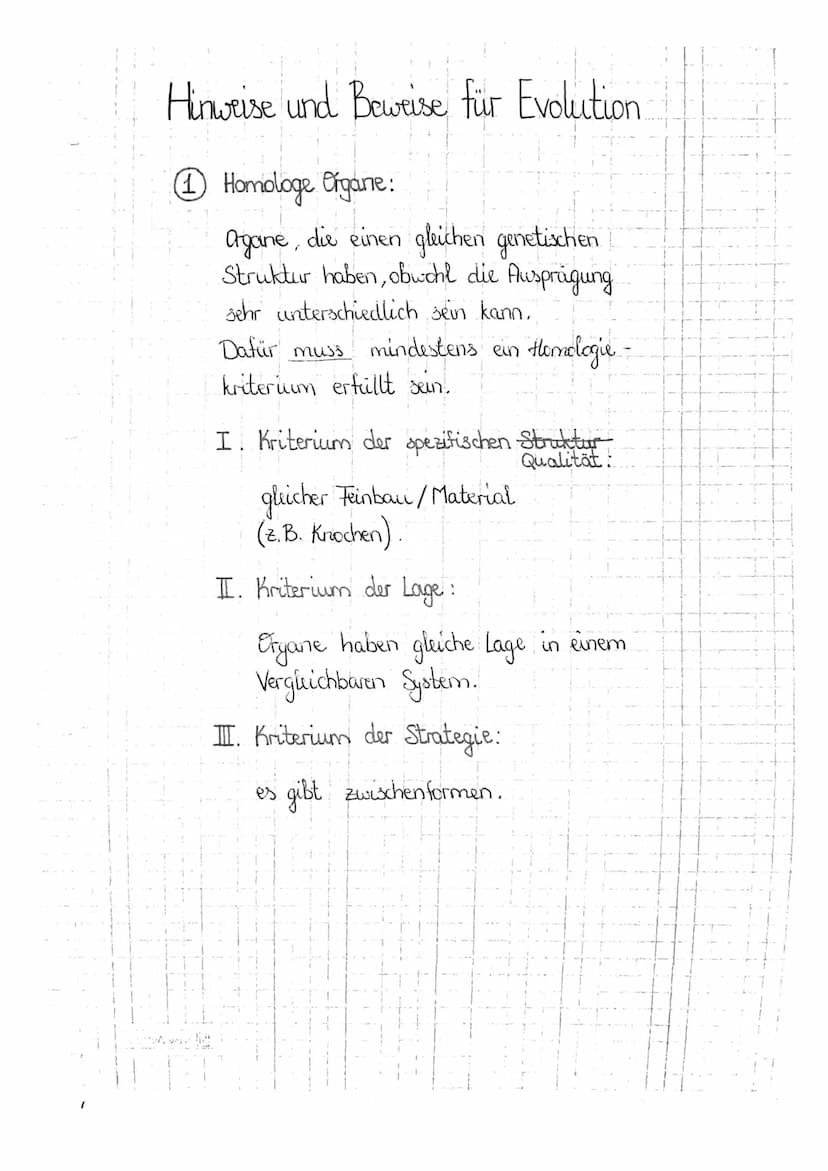 Hinweise und Beweise für Evolution
① Homologe Organe:
Organe, die einen gleichen genetischen
Struktur haben, obwohl die Ausprägung
sehr unterschiedlich sein kann.
Dafür muss mindestens ein Homologie-
kriterium erfüllt sein.
I. Kriterium der spezifischen Struktur
Qualität:
gleicher Feinbau/Material
(z.B. Knochen).
II. Kriterium der Lage:
Organe haben gleiche Lage in einem
Vergleichbaren System.
III. Kriterium der Strategie:
es gibt zwischenformen.